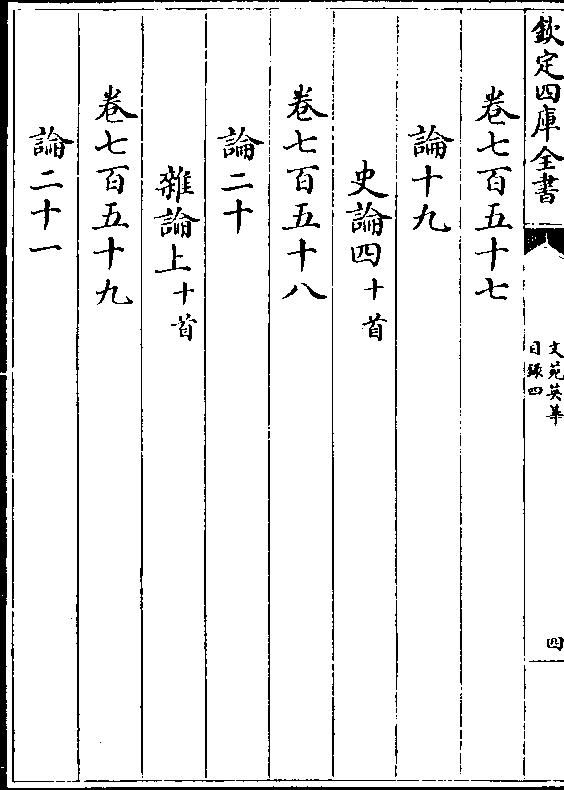 欽定四庫全書
文苑英華
目錄四
四
卷七百五十七
論十九
史論四十首
卷七百五十八
論二十
雜論上十首
卷七百五十九
論二十一